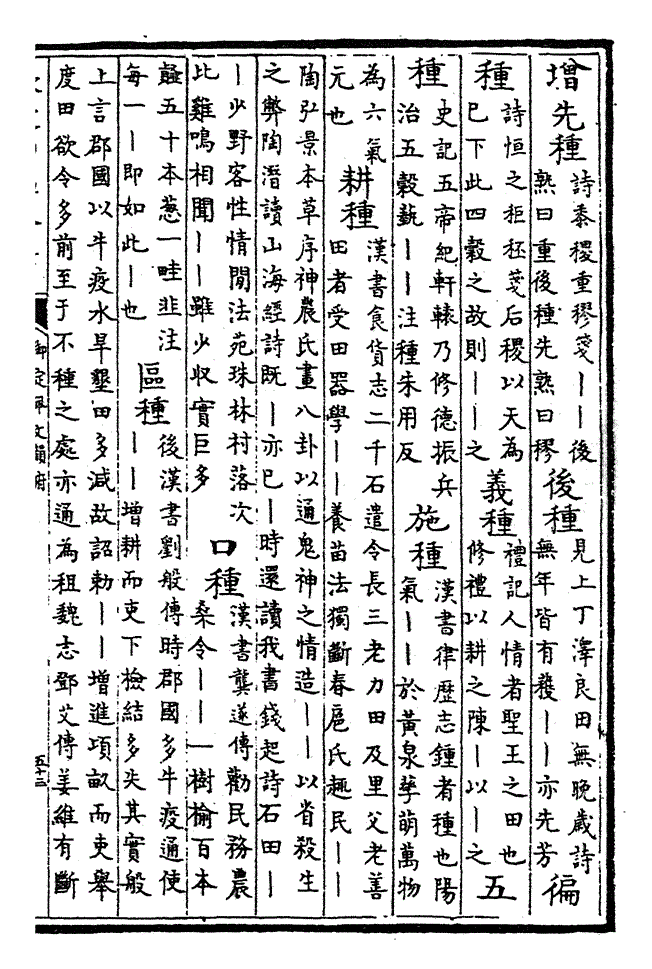 增先種
詩黍稷重穋箋｜｜後
熟曰重後種先熟曰穋
後種
見上丁澤良田無晚歲詩
無年皆有穫｜｜亦先芳
徧
種
詩恒之秬秠箋后稷以天為
已下此四穀之故則｜｜之
義種
禮記人情者聖王之田也
修禮以耕之陳｜以｜之
五
種
史記五帝紀軒轅乃修德振兵
治五穀蓺｜｜注種朱用反
施種
漢書律歷志鍾者種也陽
氣｜｜於黃泉孳萌萬物
為六氣
元也
耕種
漢書食貨志二千石遣令長三老力田及里父老善
田者受田器學｜｜養苗法獨斷春扈氏趣民｜｜
陶弘景本草序神農氏畫八卦以通鬼神之情造｜｜以省殺生
之弊陶潛讀山海經詩既｜亦已｜時還讀我書錢起詩石田｜
｜少野客性情閒法苑珠林村落次
比雞鳴相聞｜｜雖少收實巨多
口種
漢書龔遂傳勸民務農
桑令｜｜一樹榆百本
韰五十本蔥一畦韭注
每一｜即如此｜也
區種
後漢書劉般傳時郡國多牛疫通使
｜｜增耕而吏下檢結多失其實般
上言郡國以牛疫水旱墾田多減故詔勑｜｜增進項畝而吏舉
度田欲令多前至于不種之處亦通為租魏志鄧艾傳姜維有斷
御定佩文韻府
五十三